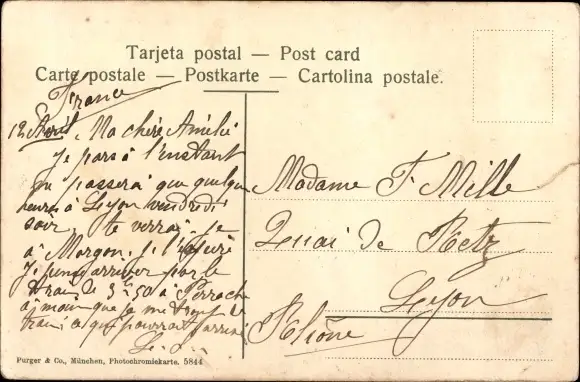 Tarjeta postal — Post card
Carte postale — Postkarte — Cartolina postale.
France
12 Avril. Ma chère Amélie
Je pars à l'instant
passerai que quelques
heures à Lyon vendredi
soir. te verrai-je
à Morgon. Je l'espère
Je pense arriver par le
train de 3h 50 à Perrache
à moins que je me trompe de
train ce qui pourrait
Madame F. Mille
Quai de Retz
Lyon
Rhône
Purger & Co., München, Photochromiekarte. 5844